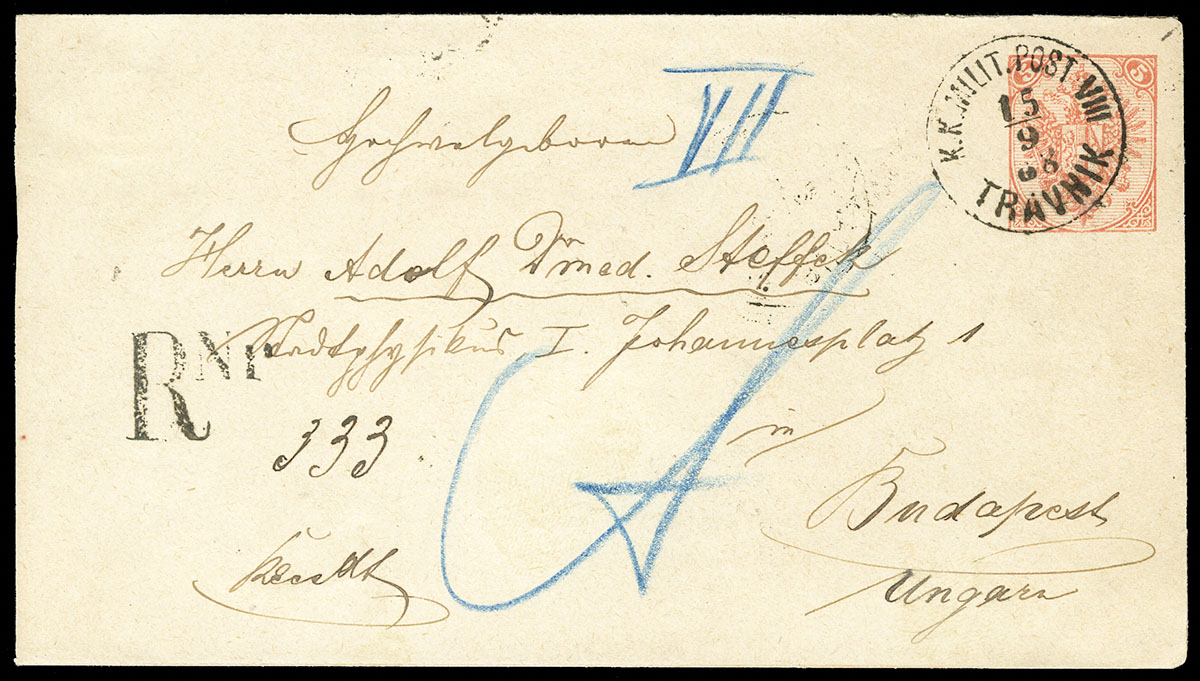 K.K. MILIT. POST VIII
15
9
TRAVNIK
5 5
VII
Hochwolgeboren
Herrn Adolf Dr med. Steffek
Stadtphysikus I. Johannesplatz 1
R Nr
333
in
Budapest
Ungarn